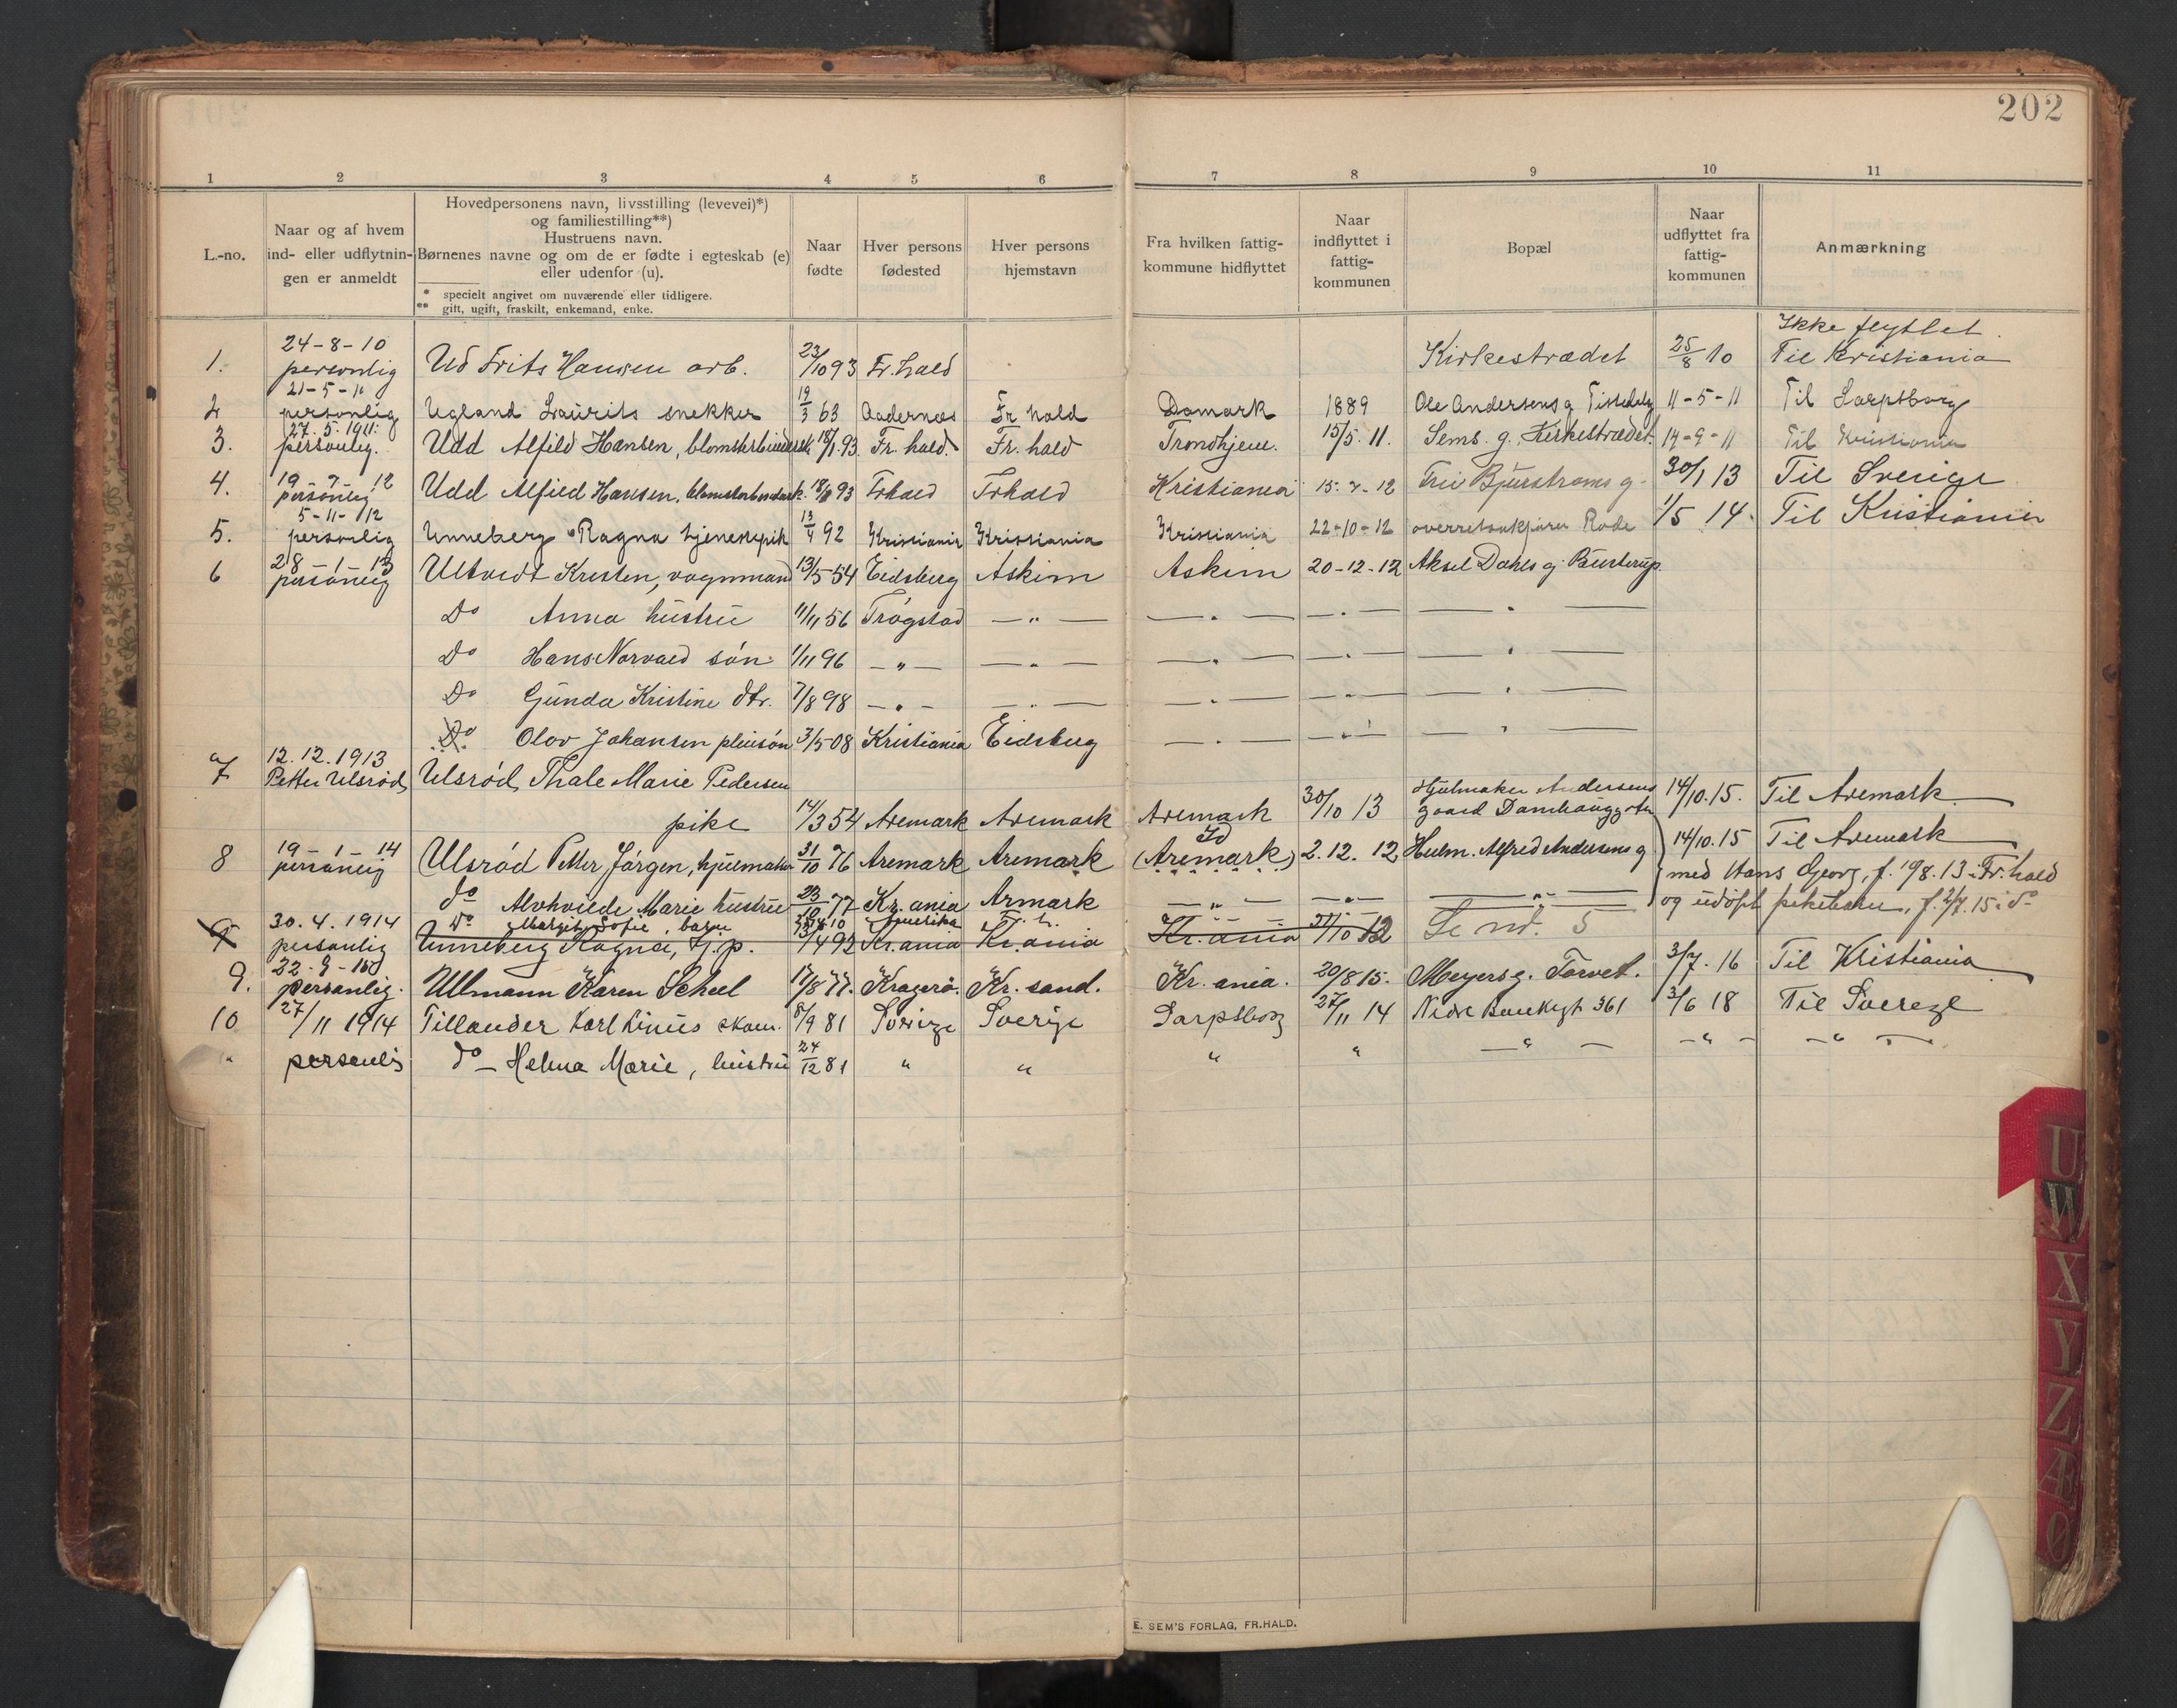 202
1 2 3 4 5 6 7 8 9 10 11
L.-no.
Naar og af hvem
ind- eller udflytnin-
gen er anmeldt
Hovedpersonens navn, livsstilling (levevei)*)
og familiestilling**)
Hustruens navn.
Børnenes navne og om de er fødte i egteskab (e)
eller udenfor (u).
* specielt angivet om nuværende eller tidligere.
** gift, ugift, fraskilt, enkemand, enke.
Naar
fødte
Hver persons
fødested
Hver persons
hjemstavn
Fra hvilken fattig-
kommune hidflyttet
Naar
indflyttet i
fattig-
kommunen
Bopæl
Naar
udflyttet fra
fattig-
kommunen
Anmærkning
24-8-10 Ikke flyttet.
1. personlig Ud Frits Hansen arb. 23/10 93 Fr.hald Kirkestrædet 25/8 10 Til Kristiania
21-5-11
2 personlig Ugland Laurits snekker 19/3 63 Fr hald Damark 1889 Ole Andersens g Tistedalg 11-5-11 Til Sarpsborg
27.5.1911.
3. personlig. Udd Alfild Hansen, 18/1.93. Fr. hald. Fr. hald Trondhjem. 15/5. 11. Sems. g. Kirkestrædet. 14-9-11 Til Kristiania
19-7-12
4. personlig Udd Alfild Hansen, 93 Frhald Frhald Kristiania 15-7-12 Bjurstrøms g. 30/1 13 Til Sverige
5-11-12
5. personlig Unneberg Ragna tjenestepik 13/4 92 Kristiania Kristiania Kristiania 22-10-12 overretssakfører Rode 1/5 14. Til Kristiania
28-1-13
6 personlig Ultvedt Kresten, vognmand 13/5-54 Eidsberg Askim Askim 20-12-12 Aksel Dahls g. Busterup.
Do Anna hustru 11/11 56 Trøgstad —"— —"— —"— —"—
Do Hans Norvald søn 1/11 96 —"— —"— —"— —"— —"—
Do Gunda Kristine dtr. 7/8 98 —"— —"— —"— —"— —"—
Do Olov Johansen pleiesøn 3/5-08 Kristiania Eidsberg —"— —"— —"—
12.12.1913
7 Petter Ulsrød Ulsrød, Thale Marie Pedersen Hjulmaker Andersens 14/10.15. Til Aremark
pike 14/3 54 Aremark Aremark Aremark 30/10 13 gaard Damhaugg
Id
19-1-14
8 personlig Ulsrød Petter Jørgen, hjulmaker 31/10 76 Aremark Aremark (Aremark) 2.12.12 Hulm. Alfred Andersens g. 14/10.15 Til Aremark
med Hans Georg, f. 19/8.13 i Fr.hald
do Alvhvilde Marie hustru 23/10 77 Kr.ania Armark —"— —"— —"— og udøpt pikebarn, f. 2/7.15 i do
Do Margit Sofie, barn 10 Amerika Fr. h.
30.4.1914
9 personlig Unneberg Ragna, tj.p. 13/4 92 Kr.ania Kr.ania Kr.ania 31/10 12 Se nr. 5
22-9-15
9. personlig. Ullmann Karen Scheel 17/8 77. Kragerø. Kr. sand. Kr. ania. 20/8 15. Meyers g. Torvet. 3/7. 16 Til Kristiania
10 27/11 1914 Tillander Karl Linus skom. 8/9 81 Sverige Sverige Sarpsborg 27/11 14 Nedre Bankegt 361 3/6 18 Til Sverege
" personlig do - Helma Marie, hustru 24/12 81 " " " " —"— —"— —"—
E. SEM'S FORLAG, FR.HALD.
U
W
X
Y
Z
Æ
Ø